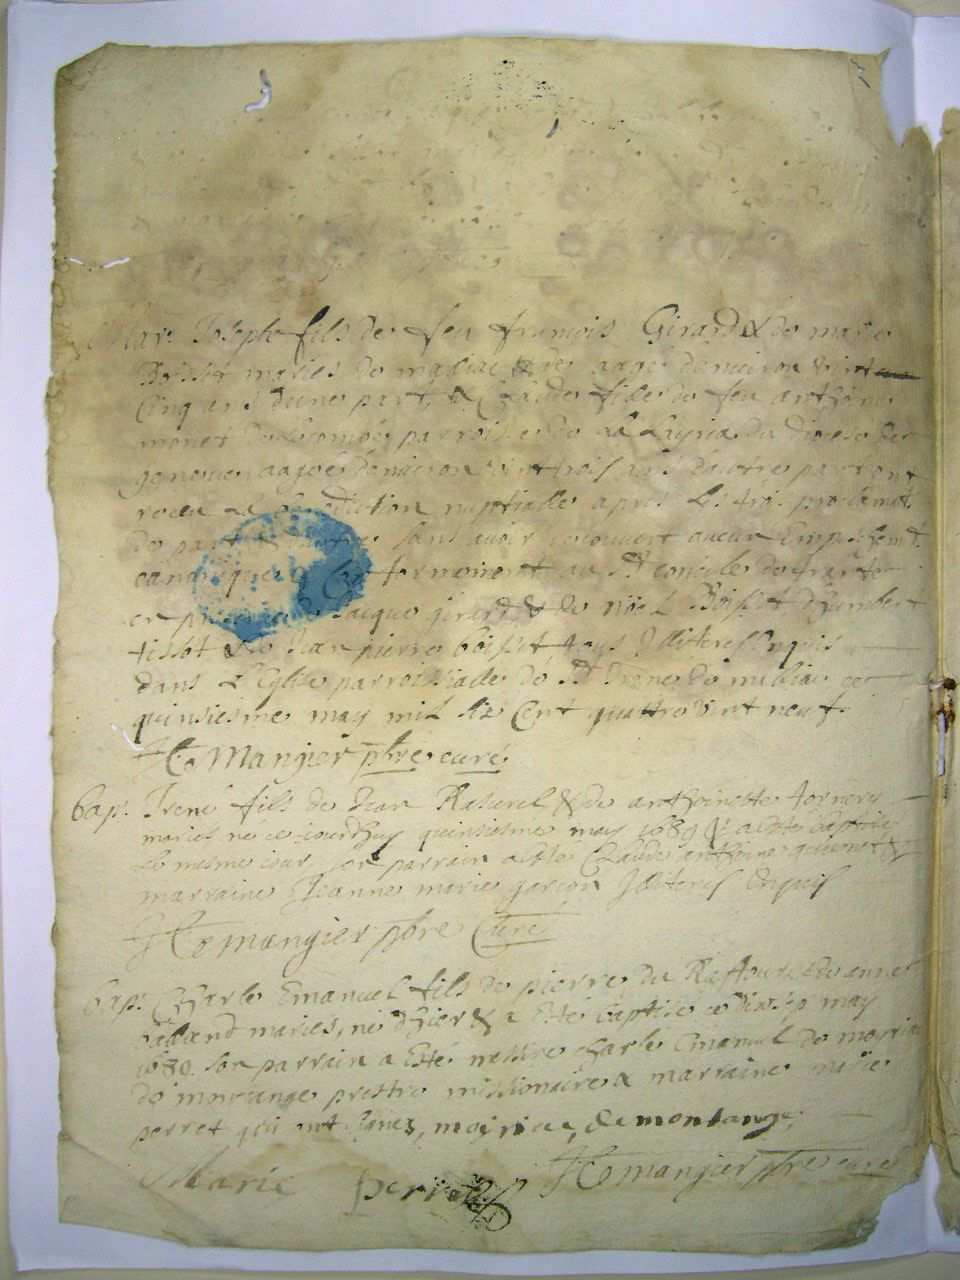 Mar. Joseph fils de feu francois Girard & de marie
Boisset mariés de mailliac aagé denviron vint
Cinq ans d'une part, & Claude fille de feu anthoine
monet parroisse de du diocese de
geneve aagée denviron vint trois ans d'autre part ont
receu la benediction nuptialle apres les trois proclamat.
de part & d'autre sans avoir decouvert aucun Empeschemt.
canonique & conformement au St concile de trante
en presence de Jacque girard & de noel Boisset d'humbert
tissot & de Jean pierre boisset tous Illiteres Enquis
dans L'Eglise parroissialle de St Irené de ce
quinsiesme may mil six Cent quattre vint neuf.
Mangier pbre curé
bap. Irené fils de Jean Raturel & de anthoinette tornery
mariés né ce iourdhuy quinsiesme may 1689 & a esté baptisé
le mesme iour son parrain a esté Claude anthoine &
marraine Jeanne marie garçon Illiteres Enquis
mangier pbre Curé
bap. Charle Emanuel fils de pierre du Raffour & de anne
mariés, né d'hier & a Esté baptisé ce dixsep may
1689. son parrain a Esté messire charle Emanuel de moyriac
de montange prestre missionaire & marraine marie
perret qui ont signez, moyriac, de montange,
Marie perret mangier pbre curé